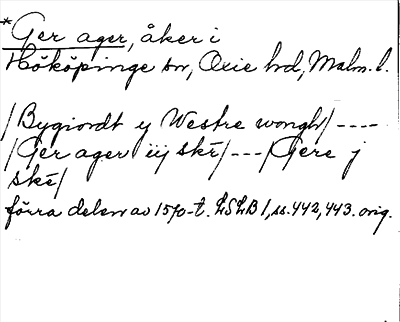 *Ger ager, åker i
Hököpinge sn, Oxie hd, Malm. l.
/Bygiordt y Westre wongh/----
/Ger ager iij skē/---/Gere j
skē/
förra delen av 1570-t. LSLB 1, ss. 442, 443. orig.